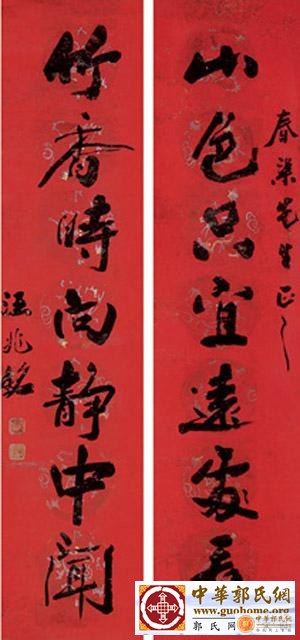 春渠先生正之
山色只宜遠處看
竹香時向静中聞
兆銘
中華郭氏網
www.guohome.org
郭氏网